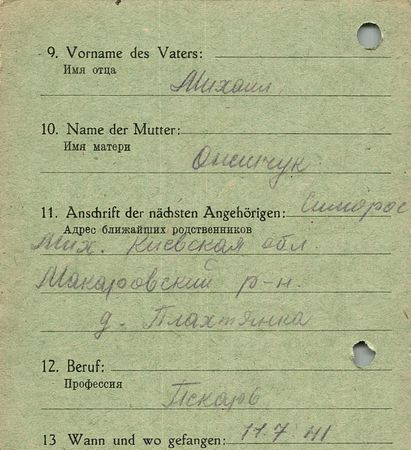 9. Vorname des Vaters:
Имя отца
Михаил
10. Name der Mutter:
Имя матери
Онищук
11. Anschrift der nächsten Angehörigen:
Адрес ближайших родственников
Мих. Киевская обл.
Макаровский р-н.
д. Плахтянка
12. Beruf:
Профессия
13 Wann und wo gefangen: 11.7.41